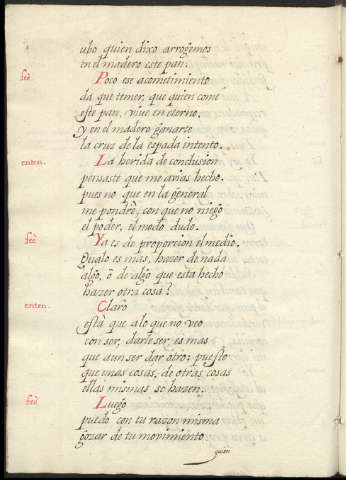 ubo quien dixo arrogemos
en el madero este pan.
feè Poco ese acometimiento
da que temer, que quien come
este pan, viue en eterno.
y en el madero ganarte
la cruz de la espada intento.
enten. La herida de conclusion
pensaste que me avias hecho.
pues no que en la general
me pondrè, con que no niego
el poder, el modo dudo.
feè Ya es de proporcion el medio.
Qual o es mas, hazer de nada
algo, ò de algo que esta hecho
hazer otra cosa?
enten. Claro
està que alo que no veo
con ser, darle ser, es mas
que aun ser dar otro; puesto
que unas cosas, de otras cosas
ellas mismas se hazen.
feè Luego
puedo con tu razon misma
gozar de tu movimiento
quien